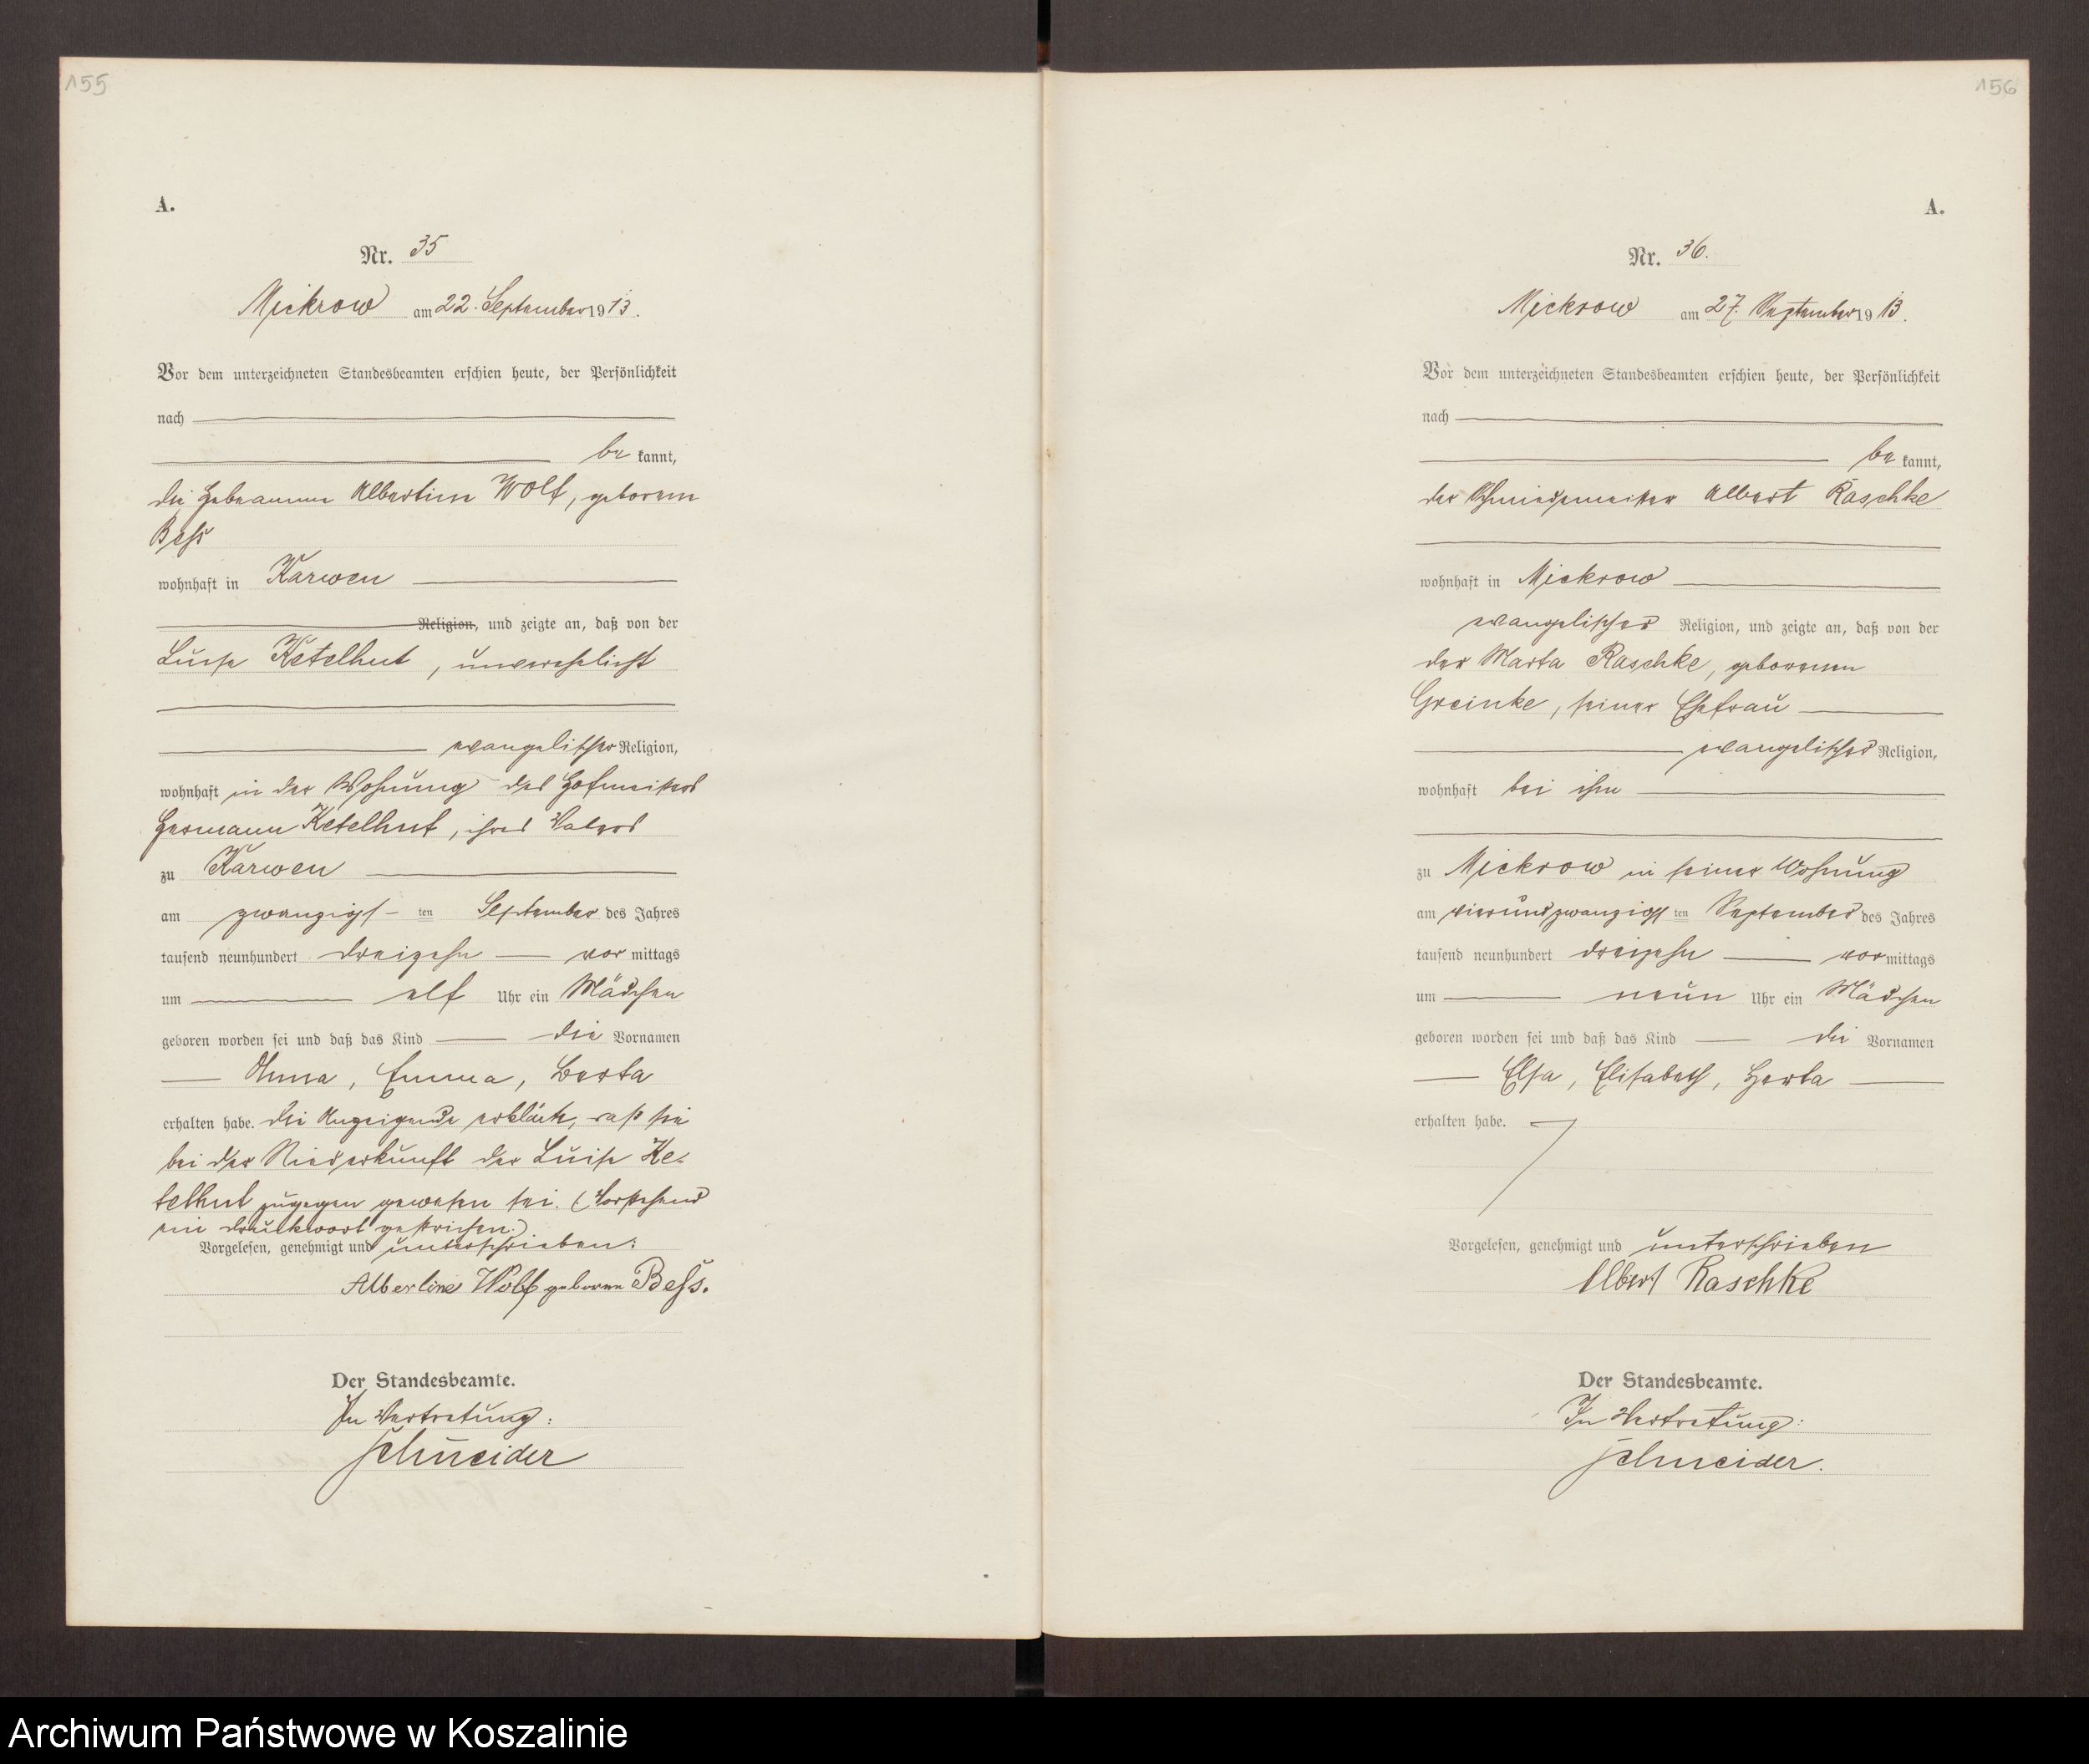 155
A.
Nr. 35
Mickrow am 22. September 1913.
Vor dem unterzeichneten Standesbeamten erschien heute, der Persönlichkeit
nach
be kannt,
die Hebeamme Albertine Wolf, geborene
Bess
wohnhaft in Karwen
Religion, und zeigte an, daß von der
Luise Ketelhut, unverehelicht
evangelischer Religion,
wohnhaft in der Wohnung des Hofmeisters
Hermann Ketelhut, ihres Vaters
zu Karwen
am zwanzigs-ten September des Jahres
tausend neunhundert dreizehn vor mittags
um elf Uhr ein Mädchen
geboren worden sei und daß das Kind die Vornamen
Anna, Emma, Berta
erhalten habe. Die Anzeigende erklärte, daß sie
bei der Niederkunft der Luise Ke-
telhut zugegen gewesen sei. (Vorstehend
ein Druckwort gestrichen.)
Vorgelesen, genehmigt und unterschrieben:
Albertine Wolf geborene Beß.
Der Standesbeamte.
In Vertretung:
Schneider
156
A.
Nr. 36.
Mickrow am 27. September 1913.
Vor dem unterzeichneten Standesbeamten erschien heute, der Persönlichkeit
nach
be kannt,
der Schmiedemeister Albert Raschke
wohnhaft in Mickrow
evangelischer Religion, und zeigte an, daß von der
der Marta Raschke, geborenen
Greinke, seiner Ehefrau
evangelischer Religion,
wohnhaft bei ihm
zu Mickrow in seiner Wohnung
am vierundzwanzigsten September des Jahres
tausend neunhundert dreizehn vor mittags
um neun Uhr ein Mädchen
geboren worden sei und daß das Kind die Vornamen
Elsa, Elisabeth, Herta
erhalten habe.
Vorgelesen, genehmigt und unterschrieben
Albert Raschke
Der Standesbeamte.
In Vertretung:
Schneider.
Archiwum Państwowe w Koszalinie